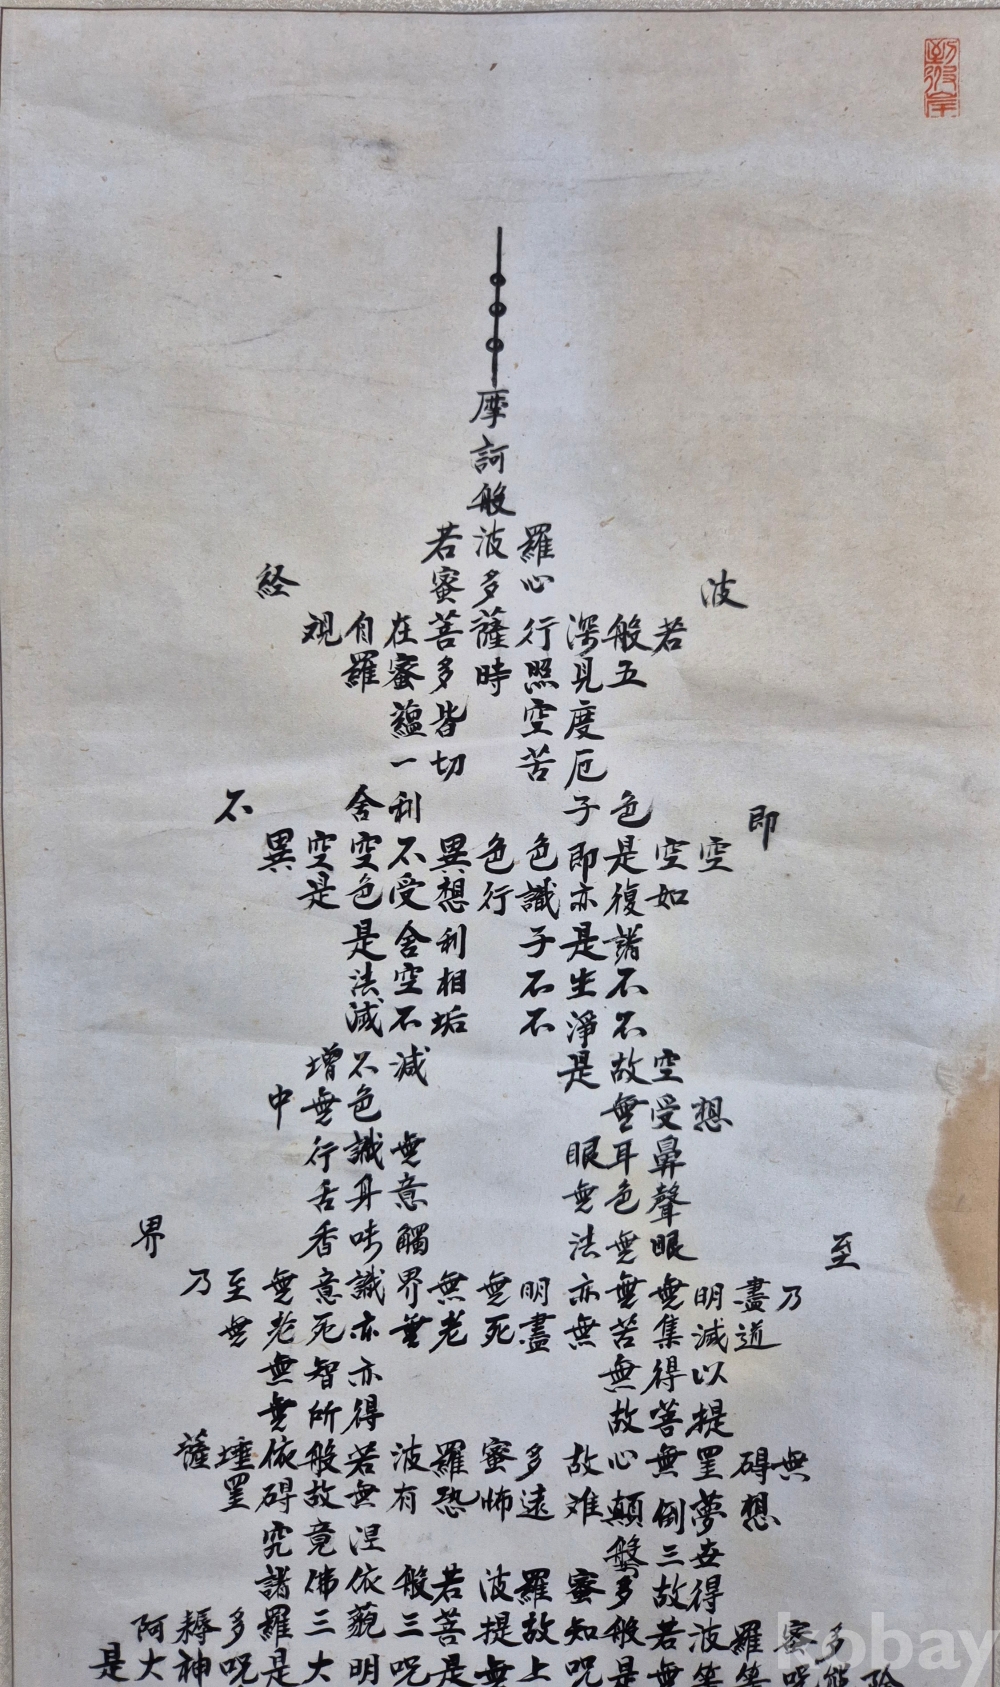 到彼岸
摩
訶
般
若波羅
蜜多心
経 波
観自在菩薩行深般若
羅蜜多時照見五
蘊皆空度
一切苦厄
舍利子色
不 即
異空空不異色色即是空空
是色受想行識亦復如
是舍利子是諸
法空相不生不
滅不垢不淨不
增不減是故空
中無色無受想
行識無眼耳鼻
舌身意無色聲
香味觸法無眼
界 至
乃至無意識界無無明亦無無明盡乃
無老死亦無老死盡無苦集滅道
無智亦無得以
無所得故菩提
薩埵依般若波羅蜜多故心無罣碍無
罣碍故無有恐怖遠难顛倒夢想
究竟涅槃三世
諸佛依般若波羅蜜多故得
阿耨多羅三藐三菩提故知般若波羅蜜多
是大神呪是大明呪是無上呪是無等呪能除
kobay